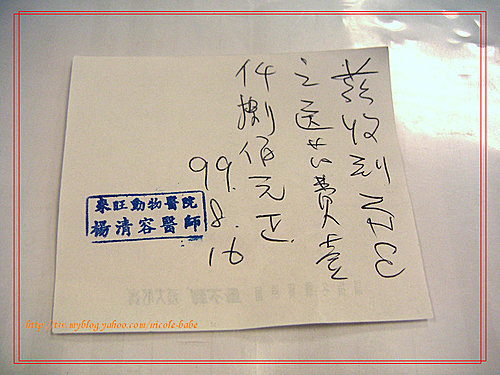 茲收到
之送葬費壹
仟捌佰元正.
99. 8. 16
來旺動物醫院
楊清容醫師
http://tw.myblog.yahoo.com/nicole-babe